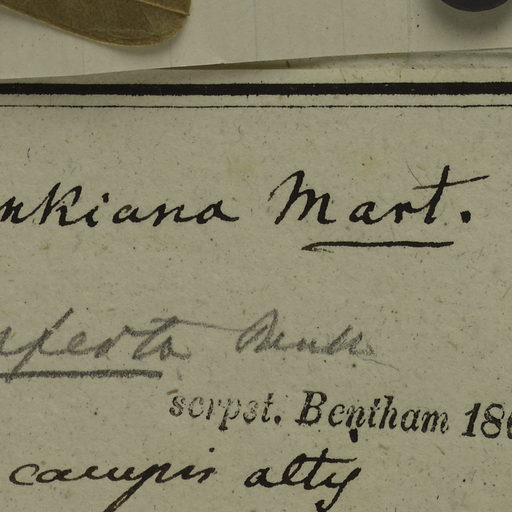 nkiana Mart.
scrpst. Bentham 186
campis altis